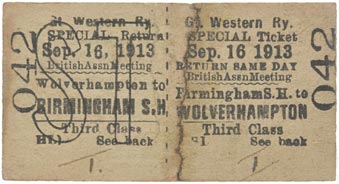 042
Gt. Western Ry.
SPECIAL Return
Sep. 16, 1913
BritishAssnMeeting
Wolverhampton to
BIRMINGHAM S.H.
Third Class
See back
1.
Gt. Western Ry.
SPECIAL Ticket
Sep. 16 1913
RETURN SAME DAY
BritishAssnMeeting
BirminghamS.H. to
WOLVERHAMPTON
Third Class
See back
1
042